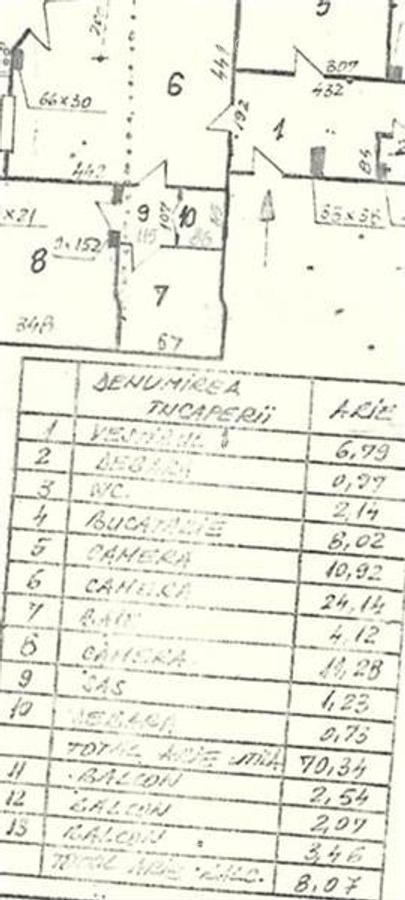 5
6
441
307
432
66x30
192
1
84
442
35x35
x21
9
107
10
115
86
8
152
7
348
67
DENUMIREA
INCAPERII ARIE
1 VESTIBUL 6,79
2 DEBARA 0,97
3 WC. 2,14
4 BUCATARIE 8,02
5 CAMERA 10,92
6 CAMERA 24,14
7 BAIE 4,12
8 CAMERA 11,28
9 SAS 1,23
10 DEBARA 0,73
TOTAL ARIE UTILA 70,34
11 BALCON 2,54
12 BALCON 2,07
13 BALCON 3,46
TOTAL ARIE BALC. 8,07